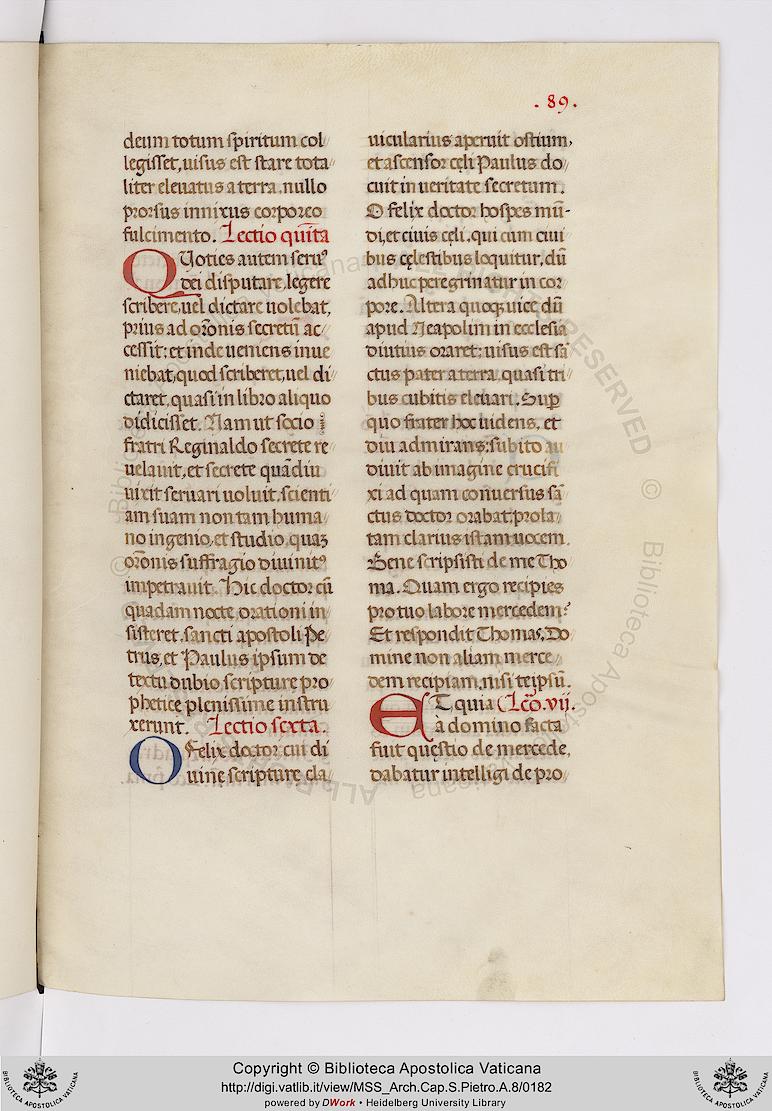 . 89 .
deum totum spiritum col
legisset, uisus est stare tota
liter eleuatus a terra, nullo
prorsus innixus corporeo
fulcimento. Lectio quīta
QUoties autem seruꝰ
dei disputare, legere
scribere, uel dictare uolebat,
prius ad orōnis secretū ac-
cessit: et inde uemens inue
niebat, quod scriberet, uel di-
ctaret, quasi in libro aliquo
didicisset. Nam ut socio
fratri Reginaldo secrete re
uelauit, et secrete quādiu
uixit seruari uoluit, scienti
am suam non tam huma
no ingenio, et studio, quaꝫ
orōnis suffragio diuinitꝰ
impetrauit. Hic doctor cū
quadam nocte orationi in
sisteret, sancti apostoli Pe
trus, et Paulus ipsum de
textu dubio scripture pro
phetice plenissime instru
xerunt. Lectio sexta.
O Felix doctor cui di
uine scripturę cla
uicularius aperuit ostium,
et ascensor cęli Paulus do
cuit in ueritate secretum.
O felix doctor hospes mū-
di, et ciuis cęli, qui cum ciui
bus cęlestibus loquitur, dū
adhuc peregrinatur in cor
pore. Altera quoqȝ uice dū
apud Neapolim in ecclesia
diutius oraret: uisus est sā
ctus pater a terra, quasi tri
bus cubitis eleuari. Suꝑ
quo frater hoc uidens, et
diu admirans: subito au
diuit ab imagine crucifi
xi ad quam conuersus sā
ctus doctor orabat: prola
tam clarius istam uocem.
Bene scripsisti de me Tho
ma. Quam ergo recipies
pro tuo labore mercedem?
Et respondit Thomas, Do
mine non aliam merce
dem recipiam, nisi teipsū.
ET quia Lcō. vij.
à domino facta
fuit quęstio de mercede,
dabatur intelligi de pro
Copyright © Biblioteca Apostolica Vaticana
http://digi.vatlib.it/view/MSS_Arch.Cap.S.Pietro.A.8/0182
powered by DWork • Heidelberg University Library
BIBLIOTECA APOSTOLICA VATICANA
BIBLIOTECA APOSTOLICA VATICANA